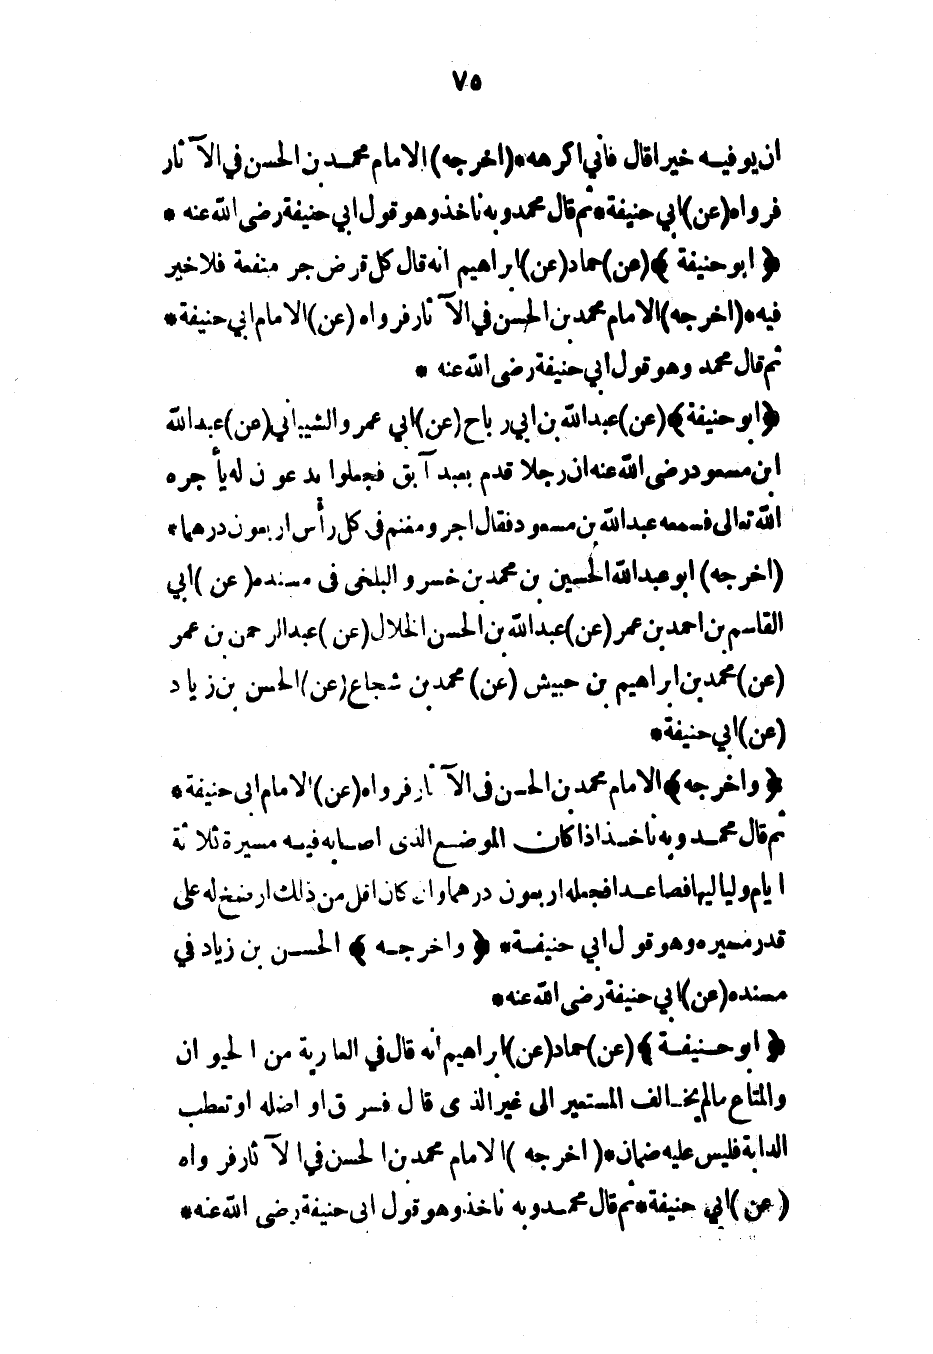 ٧٥
ان يوفيه خيرا قال فاني اكرهه * (اخرجه) الامام محمد بن الحسن في الآثار
فرواه (عن) ابي حنيفة * ثم قال محمد وبه ناخذ وهو قول ابي حنيفة رضى الله عنه *
﴿ ابو حنيفة ﴾ (عن) حماد (عن) ابراهيم انه قال كل قرض جر منفعة فلا خير
فيه * (اخرجه) الامام محمد بن الحسن في الآثار فرواه (عن) الامام ابي حنيفة *
ثم قال محمد وهو قول ابي حنيفة رضى الله عنه *
﴿ ابو حنيفة ﴾ (عن) عبد الله بن ابي رباح (عن) ابي عمرو الشيباني (عن) عبد الله
ابن مسعود رضى الله عنه ان رجلا قدم بعبد آبق فجعلوا يدعون له يأجره
الله تعالى فسمعه عبد الله بن مسعود فقال اجر ومغنم في كل رأس اربعون درهما *
(اخرجه) ابو عبد الله الحسين بن محمد بن خسرو البلخى فى مسنده (عن) ابي
القاسم بن احمد بن عمر (عن) عبد الله بن الحسن الخلال (عن) عبد الرحمن بن عمر
(عن) محمد بن ابراهيم بن حبيش (عن) محمد بن شجاع (عن) الحسن بن زياد
(عن) ابي حنيفة *
﴿ واخرجه ﴾ الامام محمد بن الحسن فى الآثار فرواه (عن) الامام ابي حنيفة *
ثم قال محمد وبه ناخذ اذا كان الموضع الذى اصابه فيه مسيرة ثلاثة
ايام ولياليها فصاعدا فجعله اربعون درهما وان كان اقل من ذلك ارضخ له على
قدر مسيره وهو قول ابي حنيفة * ﴿ واخرجه ﴾ الحسن بن زياد في
مسنده (عن) ابي حنيفة رضى الله عنه *
﴿ ابو حنيفة ﴾ (عن) حماد (عن) ابراهيم انه قال في العارية من الحيوان
والمتاع مالم يخالف المستعير الى غير الذى قال فسرق او اضله او تعطب
الدابة فليس عليه ضمان * (اخرجه) الامام محمد بن الحسن في الآثار فرواه
(عن) ابي حنيفة * ثم قال محمد وبه ناخذ وهو قول ابي حنيفة رضى الله عنه *